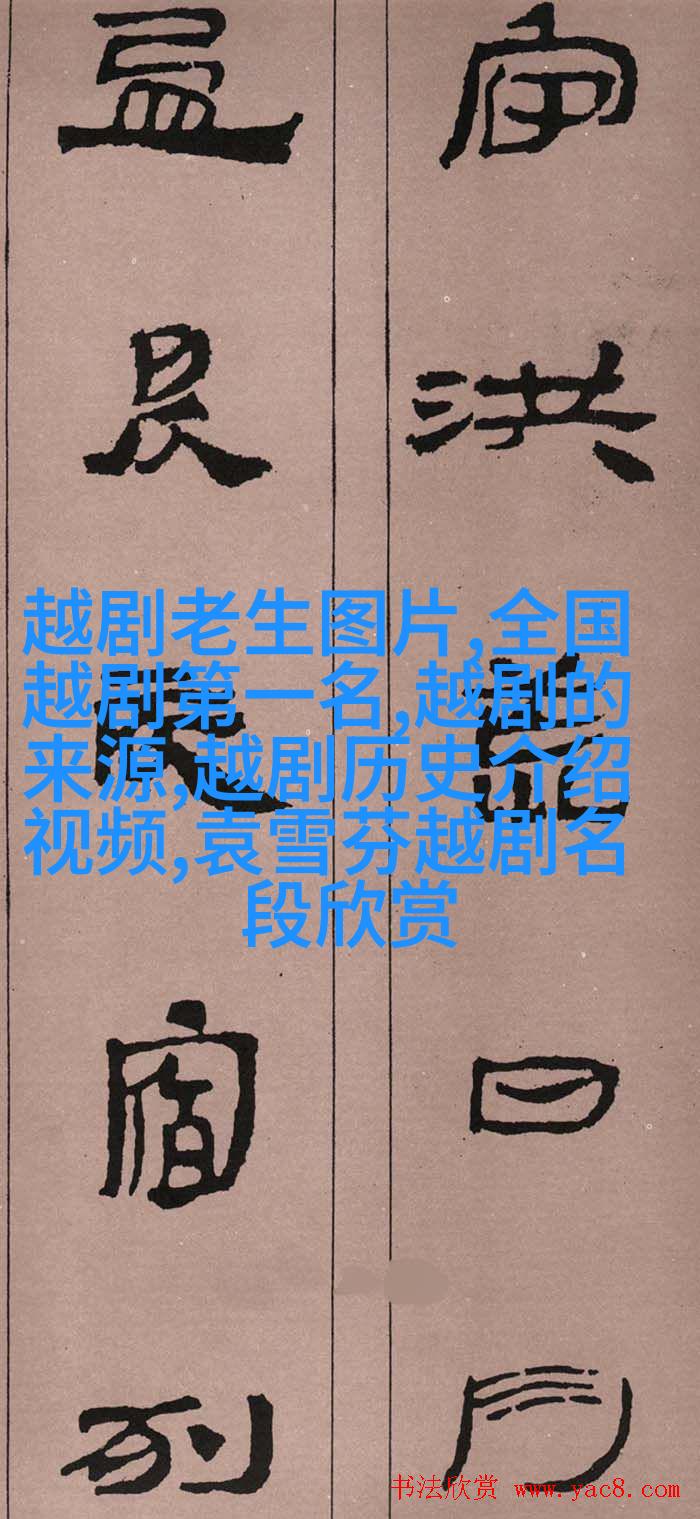 宙洪荒日月
盈昃辰宿列
越剧老生图片,全国
越剧第一名,越剧的
来源,越剧历史介绍
视频,袁雪芬越剧名
段欣赏
书法欣赏 www.yac8.com